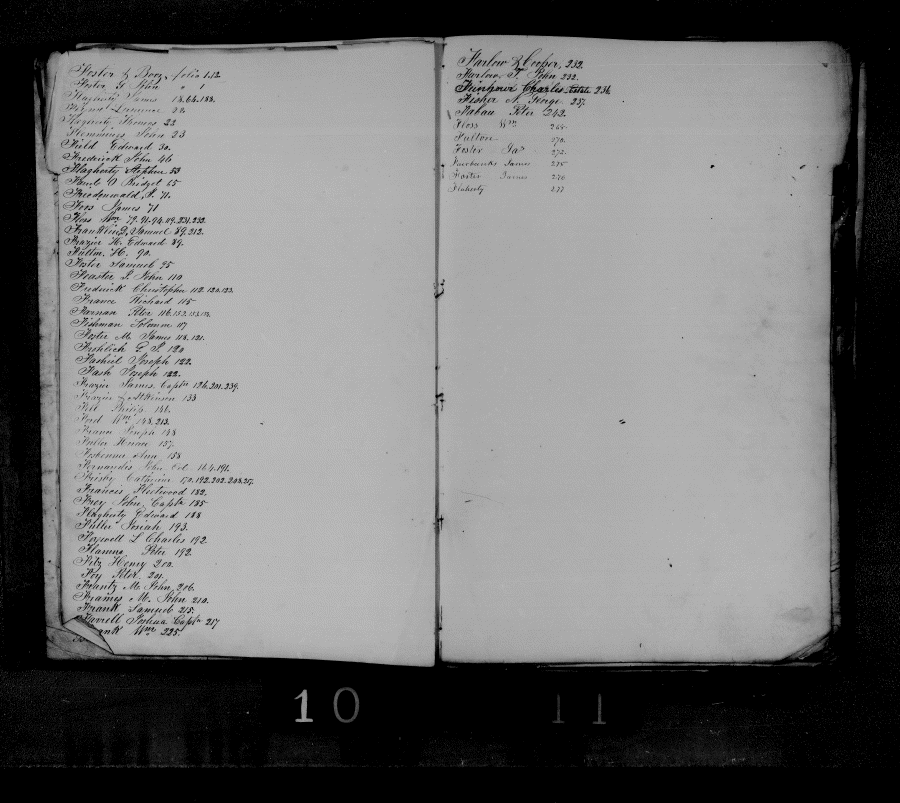 Foster & Booz, folio 1.12
Foster G. " 1
James 18.64.188.
Lawrence 22
Thomas 23
Hemmings John 23
Field Edward 30.
Frederick John 46
Flagherty Stephen 53
Bridget 65
Freodenwald, J. 71.
Foos James 71
Floss Wm 79.91.94.119.231.232.
Franklin, S, Samuel 89.212.
Frazier H. Edward 89.
Fulton H. 90.
Foster Samuel 95
Feaster J. John 110
Fredrick Christopher 112.120.123.
France Richard 115
Farnan Peter 116.152.
Fishman Solomon 117
Foster M. James 118.121.
Frohlich G. S. 120
Joseph 122.
Fash Joseph 122.
Frazier James, Captn 126.201.239.
Frazier & Atkinson 133
Fell Philip 141.
Ford Wm 148.213.
France Joseph 148
Fuller Horace 157.
Ann 158
Fernandis John Col. 164.191.
Frisby Catharine 170.192.202.208.
Frances Fleetwood 182.
Frey John, Captn 185
Flagherty Edward 188
Fuller Josiah 193.
Foxwell L Charles 192
Flamna Peter 192.
Fitz Henry 200.
Foy Peter. 201.
Frantz M. John 206.
Frames M. John 210.
Frank Samuel 215.
Ferrell Joshua Captn 217
Frank Wm 225.
Farlow & Cooper, 232.
Farlow T. John 232.
Fainhour Charles Estate 236
Fisher N. George 237.
Peter 242.
Floss Wm 268.
Fulton 270.
Foster Jas 272.
Fairbanks James 275
Foster James 276
Flaherty 277
10 11